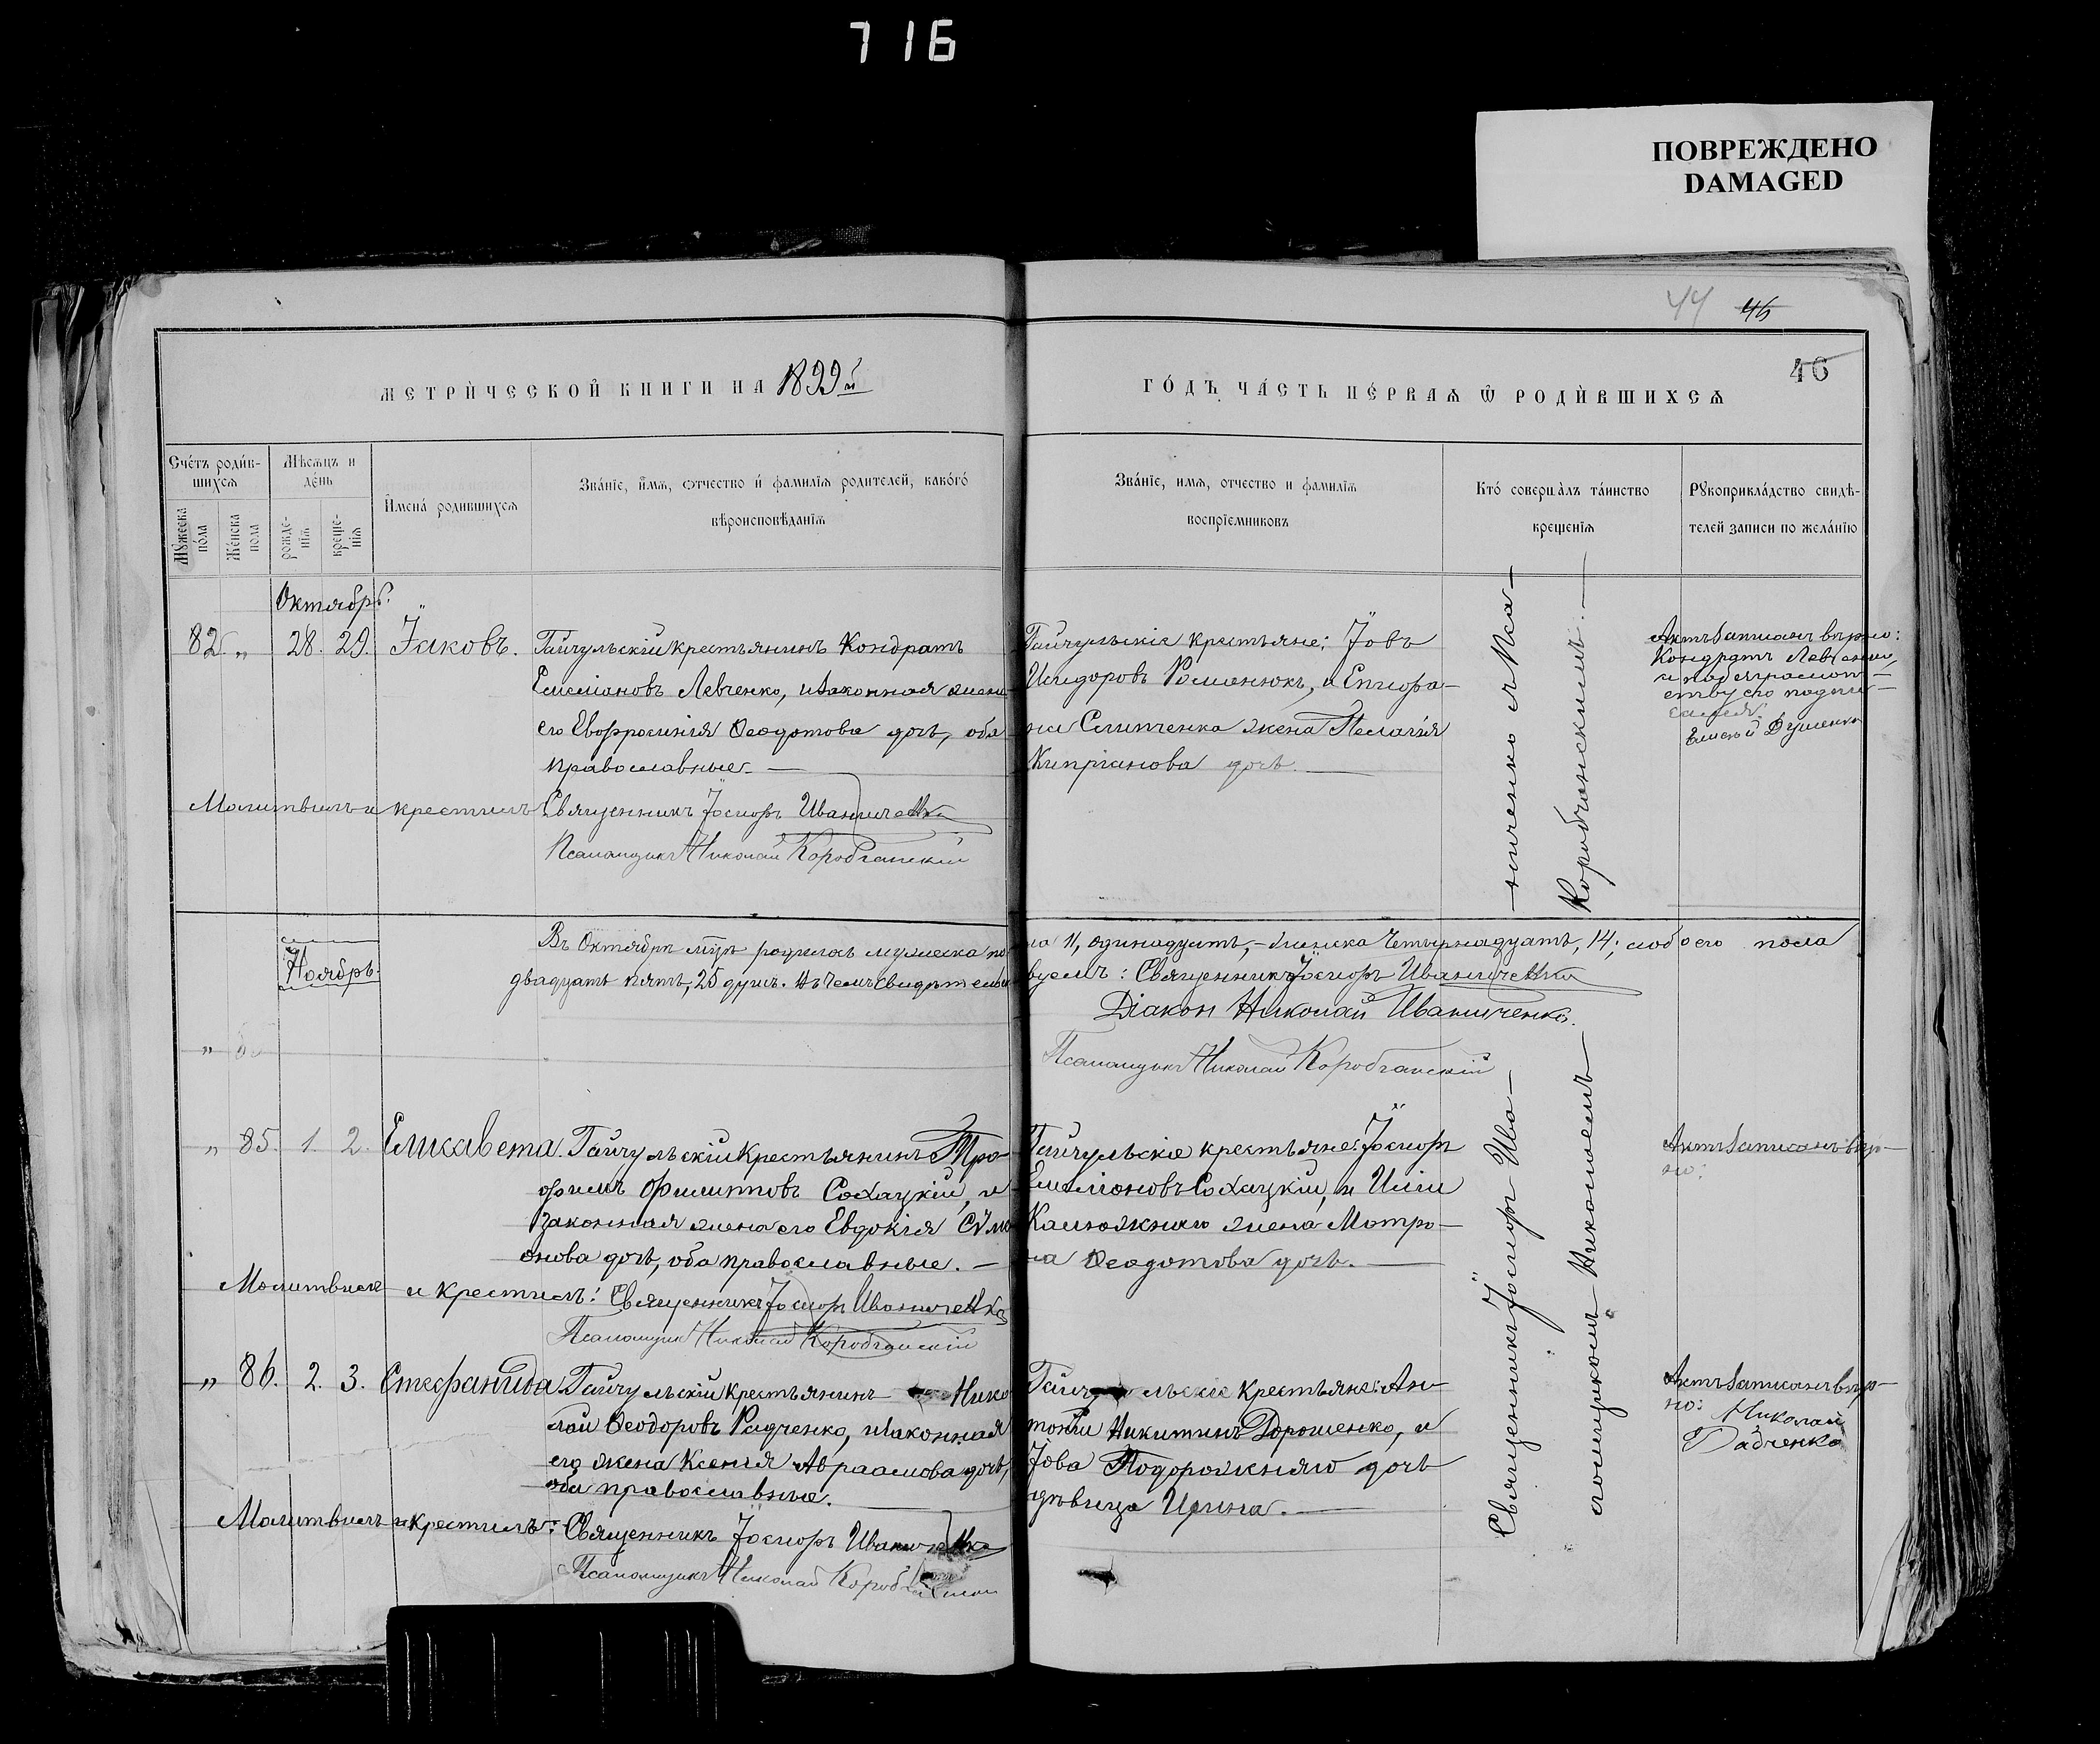 716
ПОВРЕЖДЕНО
DAMAGED
44 46
46
МЕТРИ́ЧЕСКОЙ КНИГИ НА 1899й
ГО́ДЪ ЧА́СТЬ ПЕ́РВАѦ Ѡ҆ РОДИ́ВШИХСѦ
Счéтъ роди́в-
шихсѧ
Мꙋ́жеска
по́ла
Жéнска
пола
Мѣсѧцъ и
дéнь
рожде-
нїѧ
креще-
нїѧ
Имена́ родившихсѧ
Зва́нїе, и҆́мѧ, ѻтчество и҆ фамилїѧ родителей, како́гѡ́
вѣроисповѣ́данїѧ
Зва́нїе, имѧ, отчество и фамилїѧ
воспрїемниковъ
Кто́ соверша́лъ та́инство
крещенїѧ
Рꙋкоприкла́дство свидѣ́-
телей записи по жела́нїю
Октябрь.
82. „ 28. 29. Іаковъ. Гайчульскій крестьянинъ Кондратъ
Емеліановъ Левченко, и законная жена
его Евфросинія Ѳеодотова дочь, оба
православные. —
Гайчульскіе крестьяне: Іовъ
Исидоровъ Романюкъ, и Епифа-
на Слипченка жена Пелагія
Кипріанова дочь. —
Актъ записанъ вѣрно:
Кондратъ Левченко,
а по безграмот-
ству его подпи-
сался.
Молитвилъ и крестилъ Священникъ Іосифъ Иваниченко
Псаломщикъ Николай Коробчанскій
Ноябрь.
Въ Октябрѣ мцѣ родилось мужеска по-
ла 11, одинадцать, — женска четырнадцать, 14; обоего пола
двадцать пять, 25 душъ. Въ чемъ свидѣтельст-
вуемъ: Священникъ Іосифъ Иваниченко
Діакон Николай Иваниченко.
Псаломщикъ Николай Коробчанскій
„ 85. 1. 2. Елисавета. Гайчульскій крестьянинъ Тро-
фимъ Филипповъ Сохацкій, и
законная жена его Евдокія Сѵме-
онова дочь, оба православные. —
Гайчульскіе крестьяне: Іосифъ
Емеліоновъ Сохацкій, и Иліи
Калюжнаго жена Матро-
на Ѳеодотова дочь. —
Актъ записанъ вѣр-
но:
Молитвилъ и крестилъ: Священникъ Іосифъ Иваниченко
Псаломщикъ Николай Коробчанскій
„ 86. 2. 3. Стефанида. Гайчульскій крестьянинъ Нико-
лай Ѳеодоровъ Радченко, и законная
его жена Ксенія Авраамова дочь,
оба православные. —
Гайчульскіе крестьяне: Ан-
тоній Никитинъ Дорошенко, и
Іова Подорожняго дочь
дѣвица Ирина. —
Актъ записанъ вѣр-
но: Николай
Радченко
Молитвилъ и крестилъ: Священникъ Іосифъ Иваниченко
Псаломщикъ Николай Коробчанский
Священникъ Іосифъ Ива-
ниченко и Пса-
ломщикомъ Николаемъ
Коробчанскимъ. —